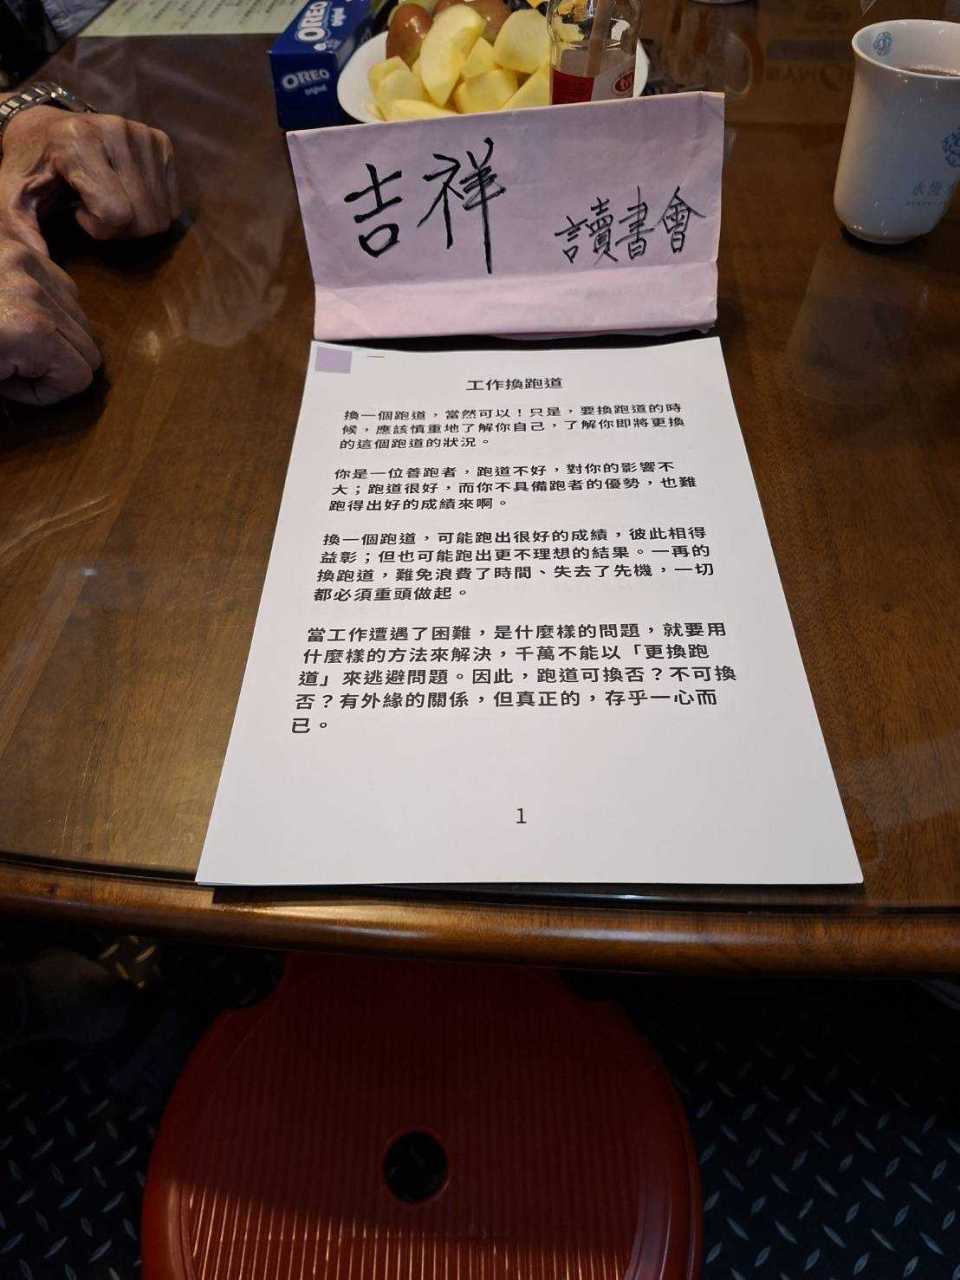 OREO
OREO
吉祥 讀書會
工作換跑道
換一個跑道，當然可以！只是，要換跑道的時
候，應該慎重地了解你自己，了解你即將更換
的這個跑道的狀況。
你是一位善跑者，跑道不好，對你的影響不
大；跑道很好，而你不具備跑者的優勢，也難
跑得出好的成績來啊。
換一個跑道，可能跑出很好的成績，彼此相得
益彰；但也可能跑出更不理想的結果。一再的
換跑道，難免浪費了時間、失去了先機，一切
都必須重頭做起。
當工作遭遇了困難，是什麼樣的問題，就要用
什麼樣的方法來解決，千萬不能以「更換跑
道」來逃避問題。因此，跑道可換否？不可換
否？有外緣的關係，但真正的，存乎一心而
已。
1